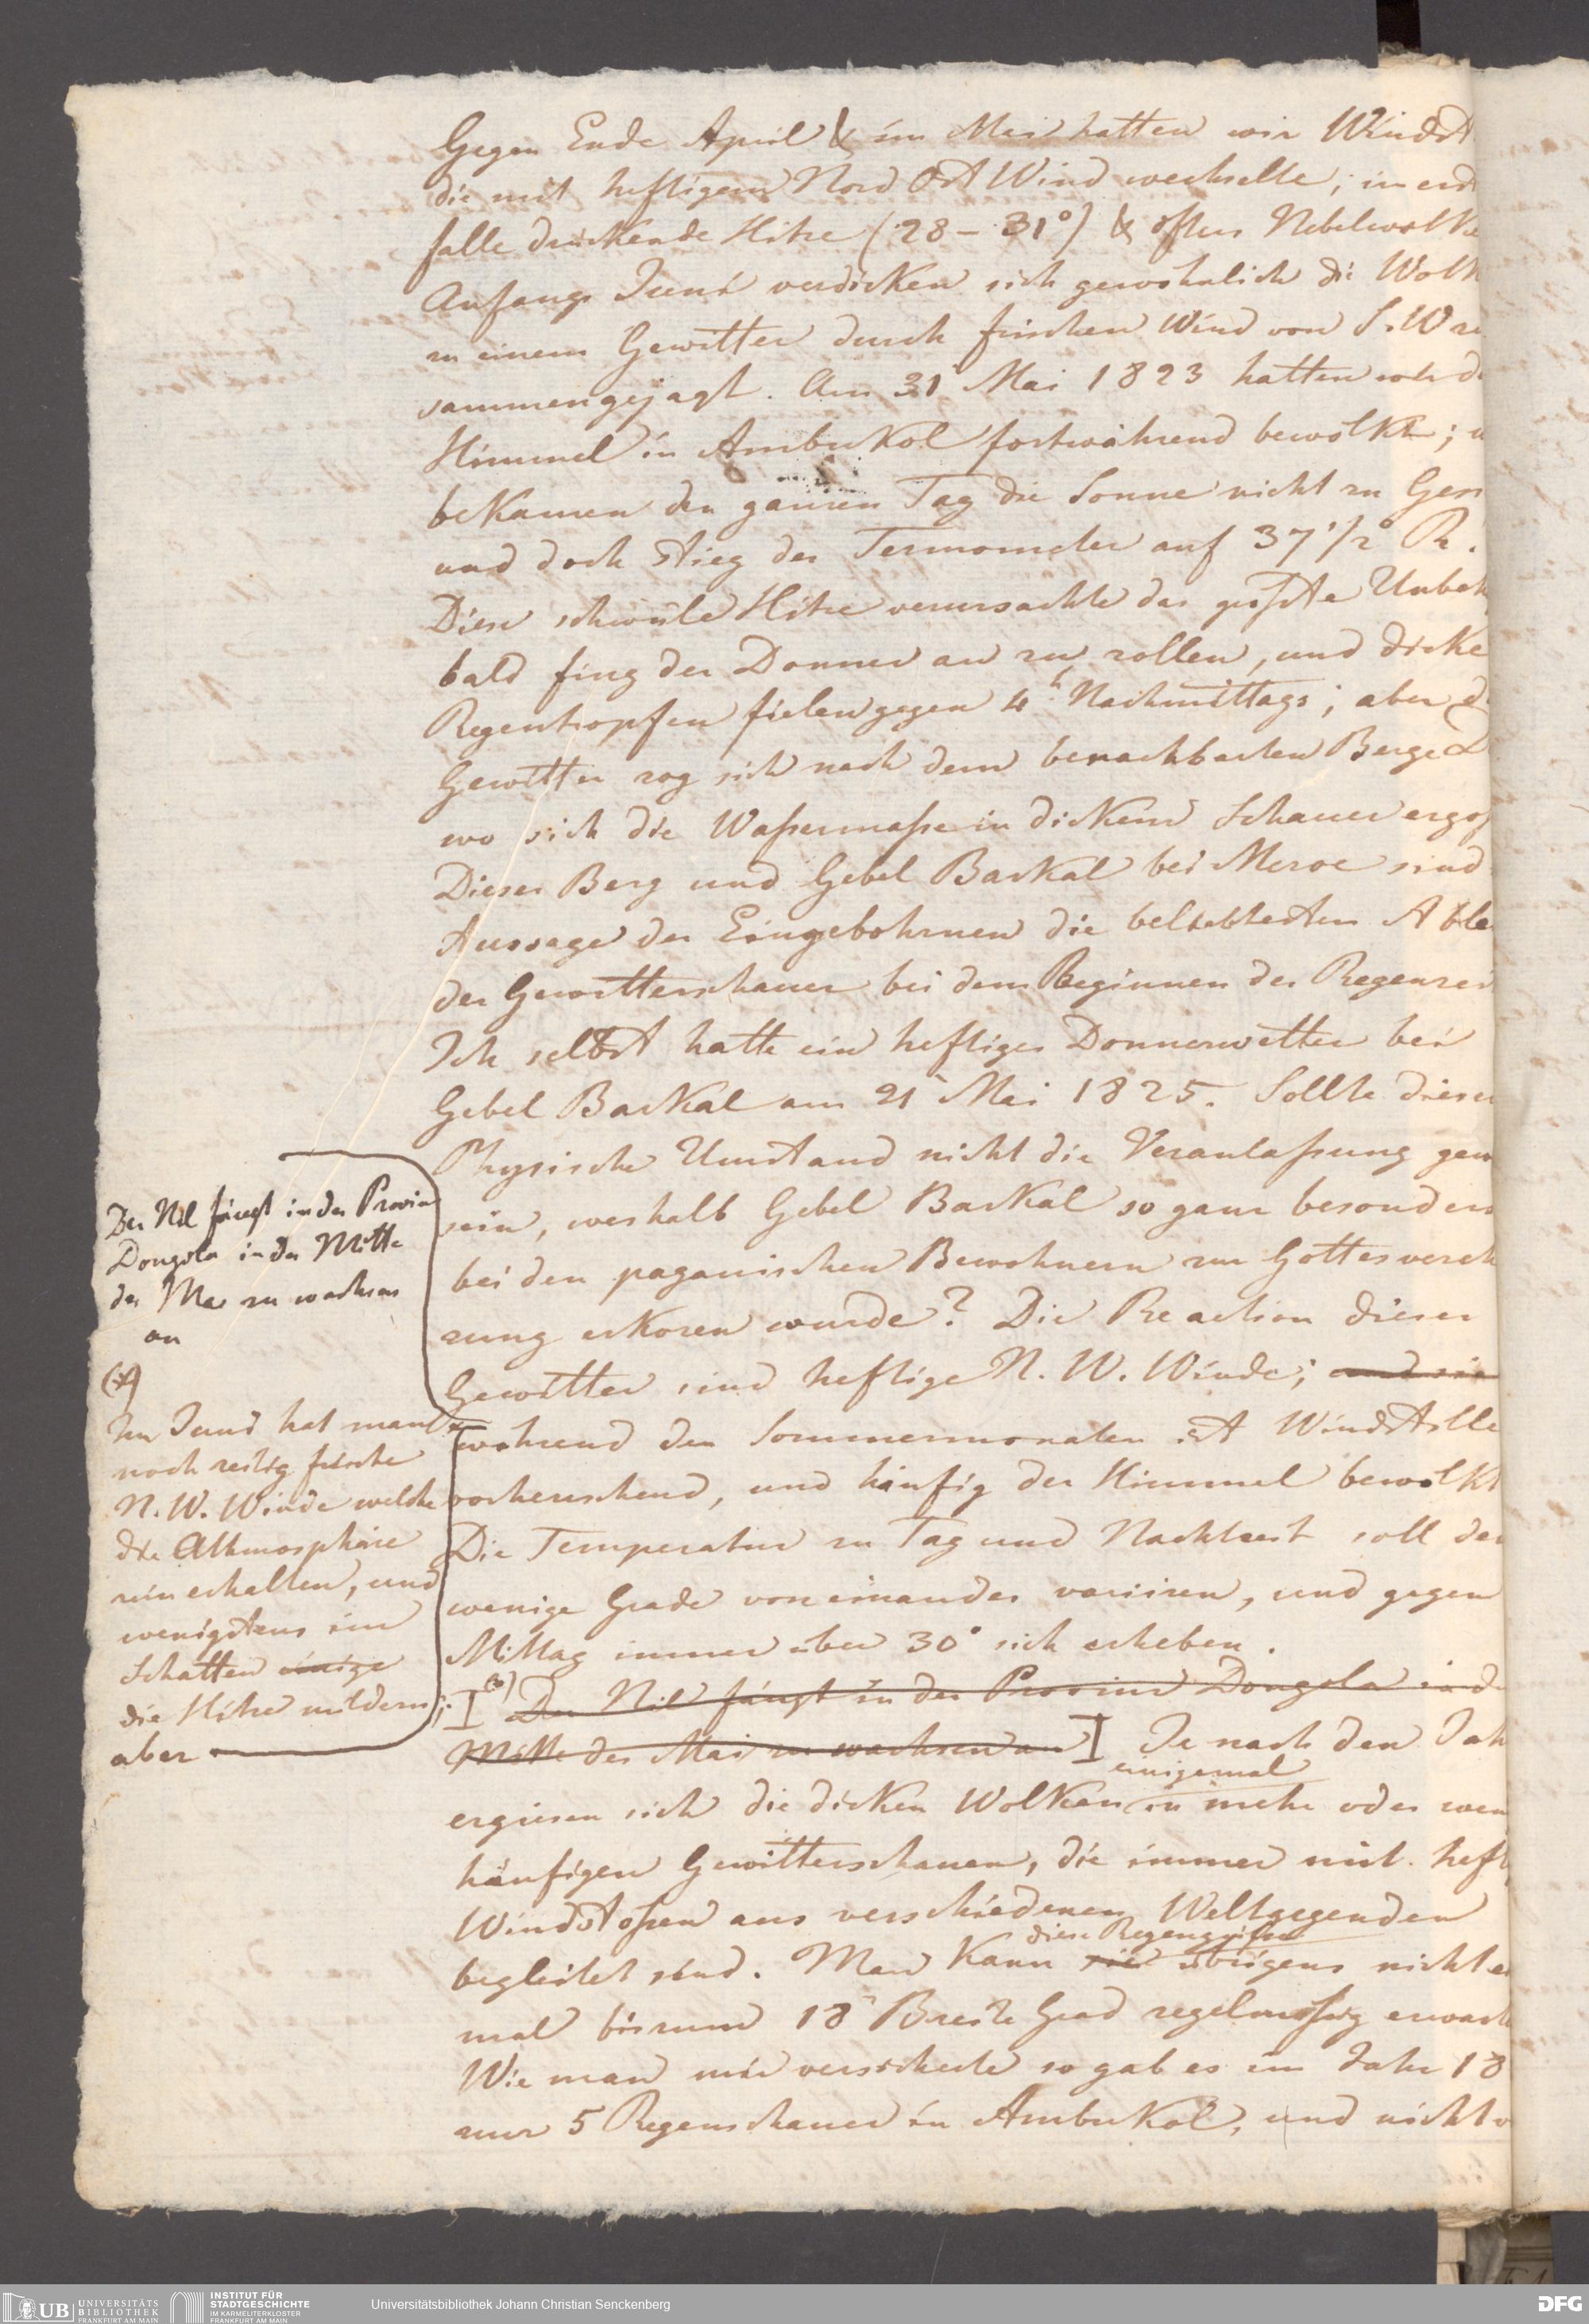 Gegen Ende April & im Mai hatten wir Windst
die mit heftigem Nord Ost Wind wechselte; im erst
falle druckende Hitze (28 – 31°) & öfters Nebelwolke
Anfangs Juni verdicken sich gewohnlich die Wolk
zu einem Gewitter durch frischen Wind von S. W zu
sammengejagt. Am 31 Mai 1823 hatten wir d
Himmel in Ambukol fortwährend bewolkt; w
bekamen den ganzen Tag die Sonne nicht zu Ges
und doch stieg der Termometer auf 37 1/2° R.
Diese schwüle Hitze verursachte das größte Unbeh
bald fing der Donner an zu rollen, und dicke
Regentropfen fielen gegen 4h Nachmittags; aber d
Gewitter zog sich nach dem benachbarten Berge D
wo sich die Waßermaße in dickem Schauer ergoß
Dieser Berg und Gebel Barkal bei Meroe sind
Aussage der Eingebohrnen die beliebtesten Able
der Gewitterschauer bei dem Beginnen der Regenzei
Ich selbst hatte ein heftiges Donnerwetter bei
Gebel Barkal am 21 Mai 1825. Sollte dieser
Physische Umstand nicht die Veranlaßung gew
sein, weshalb Gebel Barkal so ganz besonders
bei den paganischen Bewohnern zur Gottesvereh
rung erkoren wurde? Die Reaction dieser
Gewitter sind heftige N. W. Winde; und sie
während den Sommermonaten ist Windstille
vorherrschend, und häufig der Himmel bewolkt
Die Temperatur zu Tag und Nachtzeit soll da
wenige Grade von einander variiren, und gegen
Mittag immer über 30° sich erheben.
Der Nil fängt in der Provinz Dongola in d
Mitte des Mai zu wachsen an Je nach den Jah
einigemal
ergiesen sich die dicken Wolken in mehr oder wen
häufigen Gewitterschauern, die immer mit heft
Windstoßen aus verschiedenen Weltgegenden
diese Regengüße
begleitet sind. Man Kann sie übrigens nicht e
mal bis zum 18n Breite Grad regelmäßig erwart
Wie man mir versicherte so gab es im Jahr 18
nur 5 Regenschauer in Ambukol, und nicht v
Der Nil fängt in der Provinz
Dongola in der Mitte
des Mai zu wachsen
an
(*)
Im Juni hat man
noch zeitig frische
N. W. Winde welche
die Athmosphäre
rein erhalten, und
wenigstens im
Schatten einige
die Hitze mildern;
aber
UB UNIVERSITÄTS
BIBLIOTHEK
FRANKFURT AM MAIN
INSTITUT FÜR
STADTGESCHICHTE
IM KARMELITERKLOSTER
FRANKFURT AM MAIN
Universitätsbibliothek Johann Christian Senckenberg
DFG